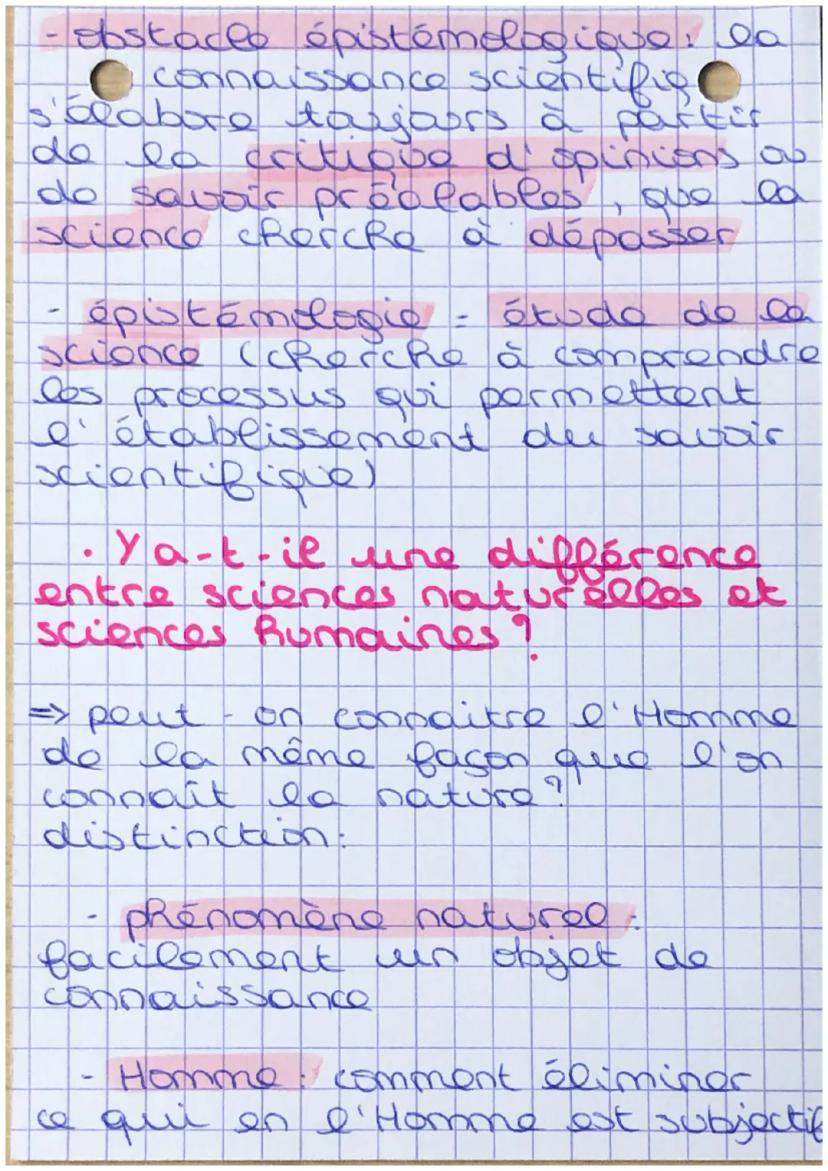 - obstacle épistémologique: la
connaissance scientifiq
s'élabore toujours à partir
de la critique d'opinions ou
de savoir préalables, que la
science cherche à dépasser
- épistémologie = étude de la
science (cherche à comprendre
les processus qui permettent
l'établissement du savoir
scientifique)
. Y a-t-il une différence
entre sciences naturelles et
sciences humaines?
=> peut-on connaitre l'Homme
de la même façon que l'on
connaît la nature?
distinction:
- phénomène naturel:
facilement un objet de
connaissance
- Homme: comment éliminer
ce qui en l'Homme est subjectif